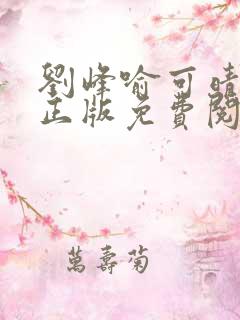 劉峰喻可晴
正版免費閱
萬壽菊